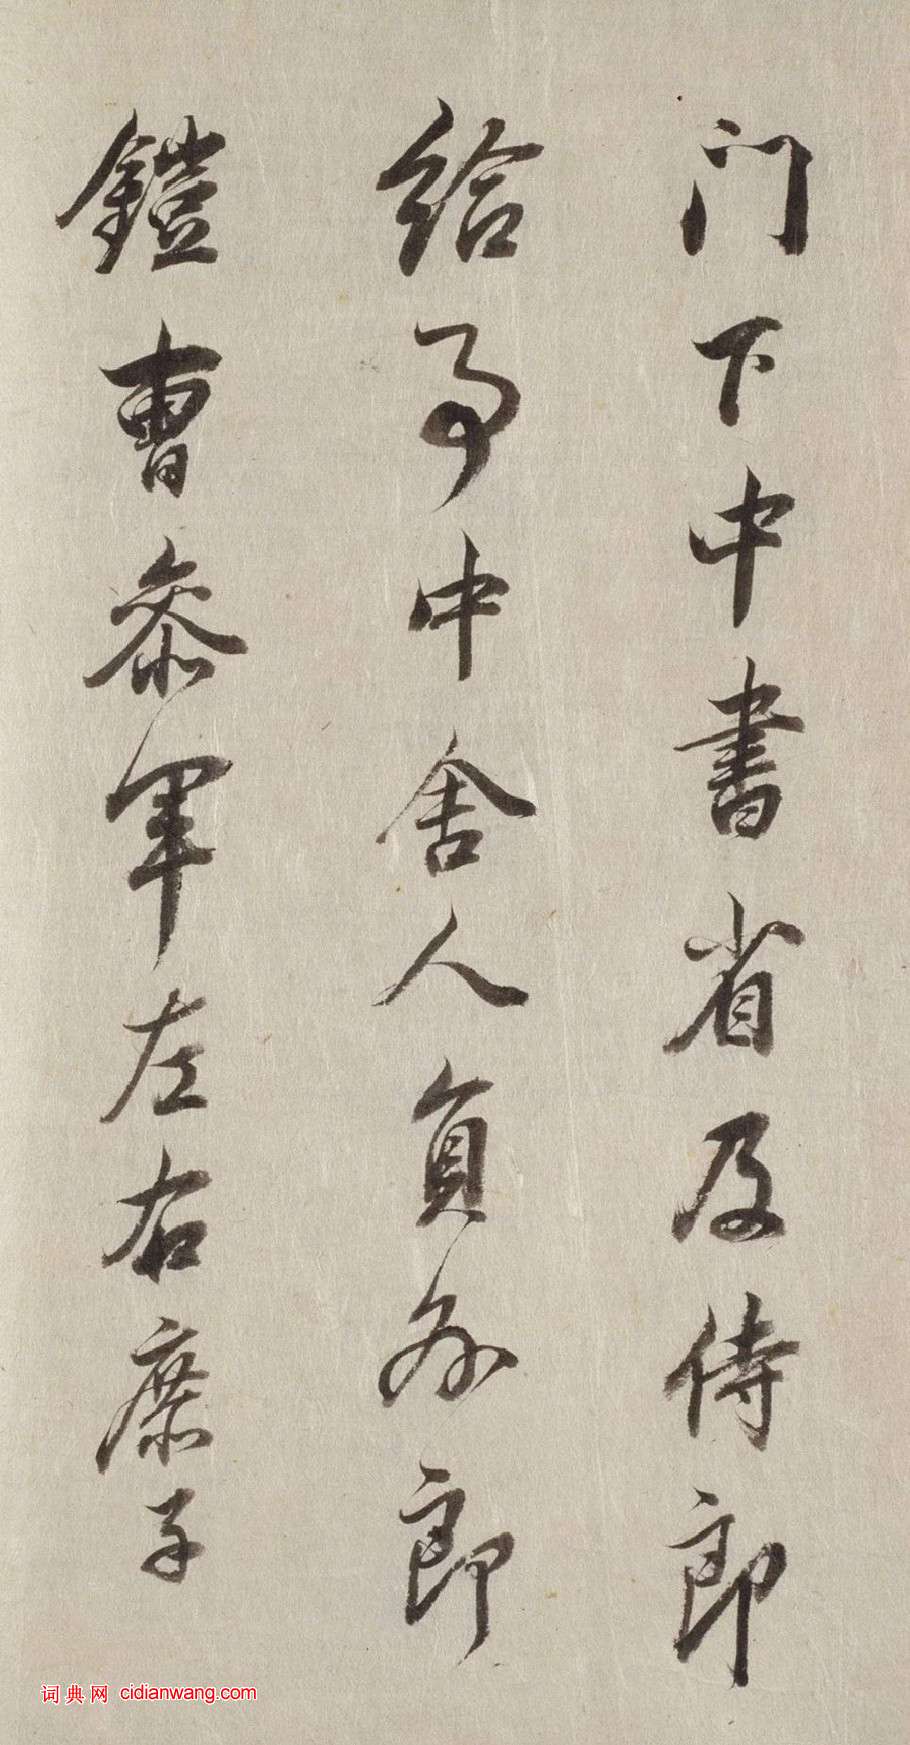 门下中書省及侍郎
給事中舍人員外郎
鎧曹叅軍左右庶子
词典网 cidianwang.com